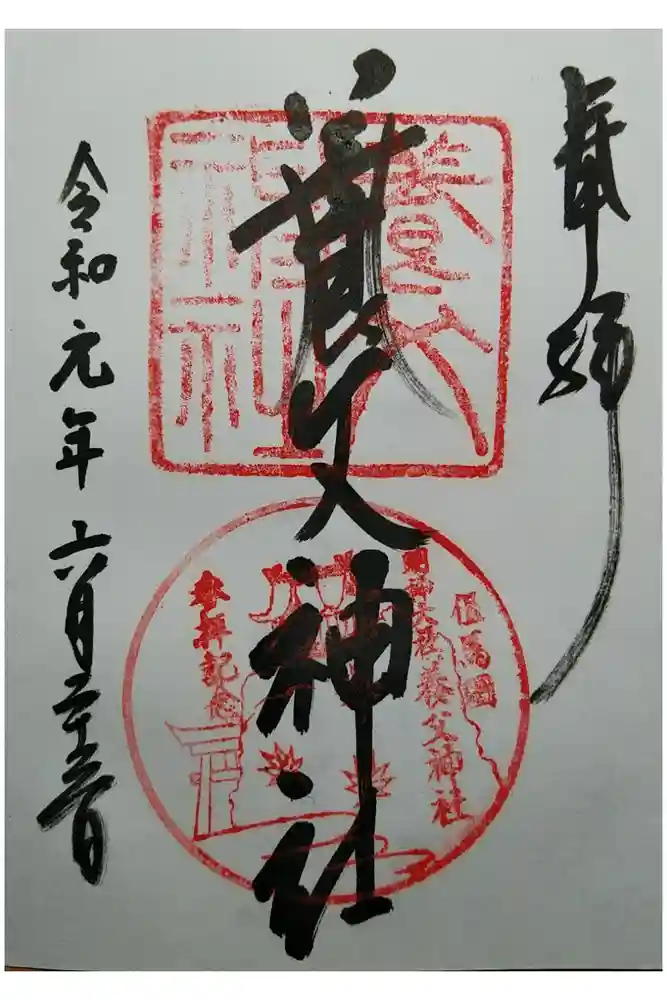 奉拝
養父神社
養父神社
但馬國
明神大社 養父神社
参拝記念
令和元年六月二十三日